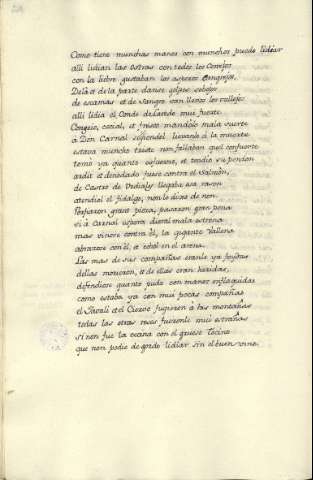 Como tiene munchas manos con munchos puede lidiar
alli lidian las Ostras con todos los Conejos
con la liebre gustaban los asperos Cangrejos.
Dela et dela parte danse golpes sobejos
de escamas et de sangre van llenos los vallejos
alli lidia el Conde de Laredo muy fuerte
Congrio, cecial, et fresco mandole mala suerte
a Don Carnal siguiendol llegandol a la muerte
estava muncho triste non fallaban quel confuerte
tomó ya quanto esfuerzo, et tendio su pendon
ardit et denodado fuese contra el Salmon,
de Castro de Urdiales llegaba esa sazon
atendiol el fidalgo, non le dixo de non.
Porfiaron grant pieza, pasaron gran pena
si a Carnal dejaran dieral mala estrena
mas vinose contra él, la gigante Vallena
abrazose con él, et echól en el arena.
Las mas de sus compañas eranle ya fasidas
dellas morieron, et dellas eran feridas,
defendiose quanto pudo con manos enflaquidas
como estaba ya con muy pocas compañas
el Javali et el Ciervo fugieron a las montañas
todas las otras reses fuéronle muy estrañas
si non fue la cecina con el grueso Tocino
que non podie de gordo lidiar sin el buen vino.